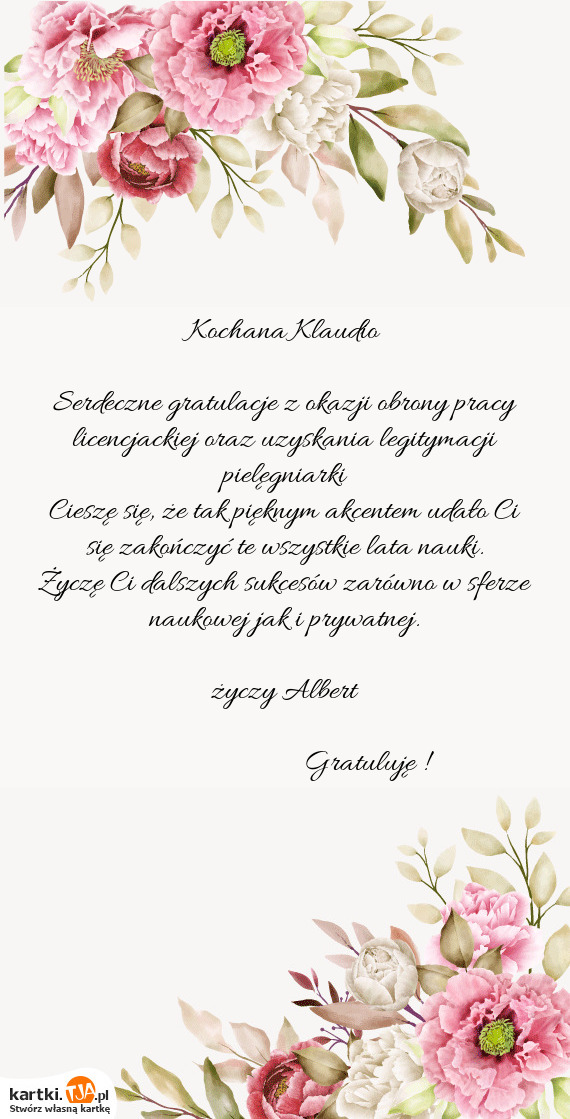 Kochana Klaudio
Serdeczne gratulacje z okazji obrony pracy
licencjackiej oraz uzyskania legitymacji
pielęgniarki
Cieszę się, że tak pięknym akcentem udało Ci
się zakończyć te wszystkie lata nauki.
Życzę Ci dalszych sukcesów zarówno w sferze
naukowej jak i prywatnej.
życzy Albert
Gratuluję !
kartki.TJA.pl
Stwórz własną kartkę